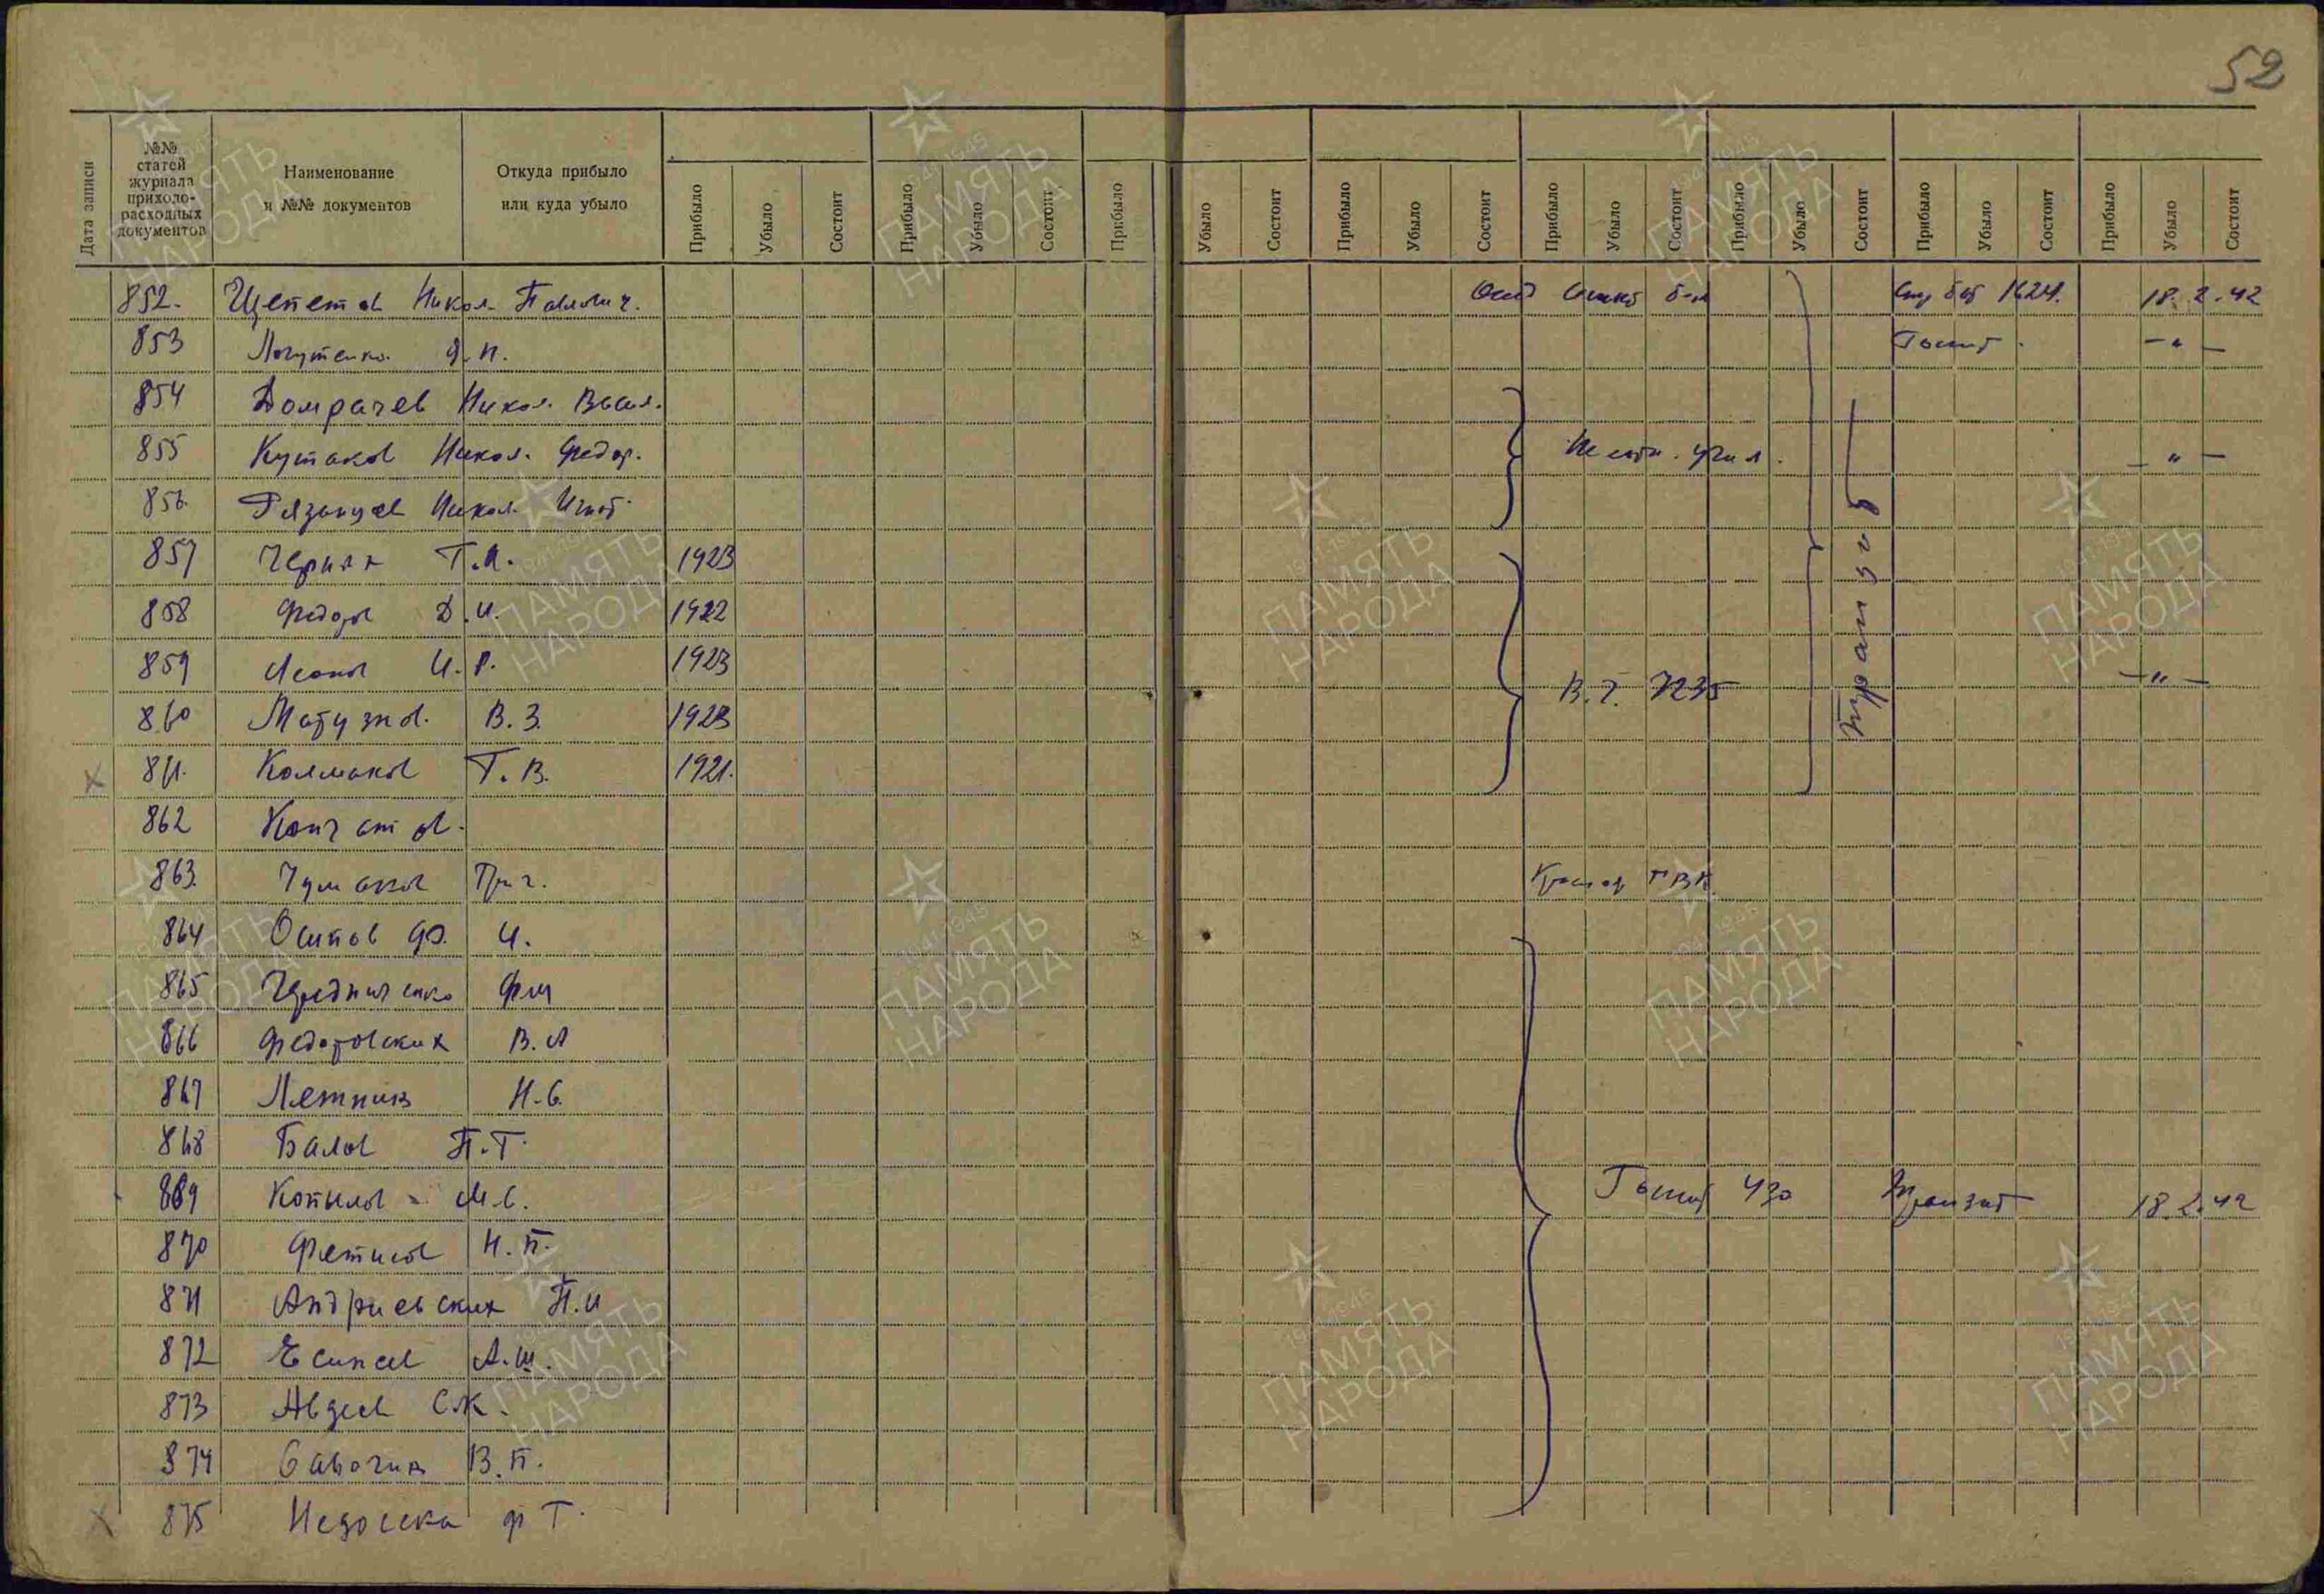 52
Дата записи
№№ статей журнала прихоло-расходных документов
Наименование и №№ документов
Откуда прибыло или куда убыло
Прибыло Убыло Состоит Прибыло Убыло Состоит Прибыло Убыло Состоит Прибыло Убыло Состоит Прибыло Убыло Состоит Прибыло Убыло Состоит Прибыло Убыло Состоит Прибыло Убыло Состоит
852. Щепетов Никол. Павлович. 1624. 18.2.42
853 Логутенко Я.П. Госпит. -"-
854 Домрачев Никол. Васил.
855 Кутаков Никол. Федор. -"-
856 Рязанцев Никол. Игнат.
857 Черняк Т.А. 1923
858 Федор Д.И. 1922
859 И.Р. 1923 В.Ч. 7235 -"-
860 Матузков. В.З. 1923
861. Колмаков Т.В. 1921.
Транзит
862
863. Чумаков Григ. РВК.
864 Осипов Ф. И.
865 Чередниченко Ф.М
866 Федотовских В.А
867 Летник Н.С.
868 Балов П.Т.
869 Копылов М.С. Госпит 430 Транзит 18.2.42
870 Фетисов Н.П.
871 Андриевских П.И
872 Есипов А.Ш.
873 Авдеев С.К.
874 Савочкин В.П.
875 Ф Т.
ПАМЯТЬ НАРОДА
1941-1945